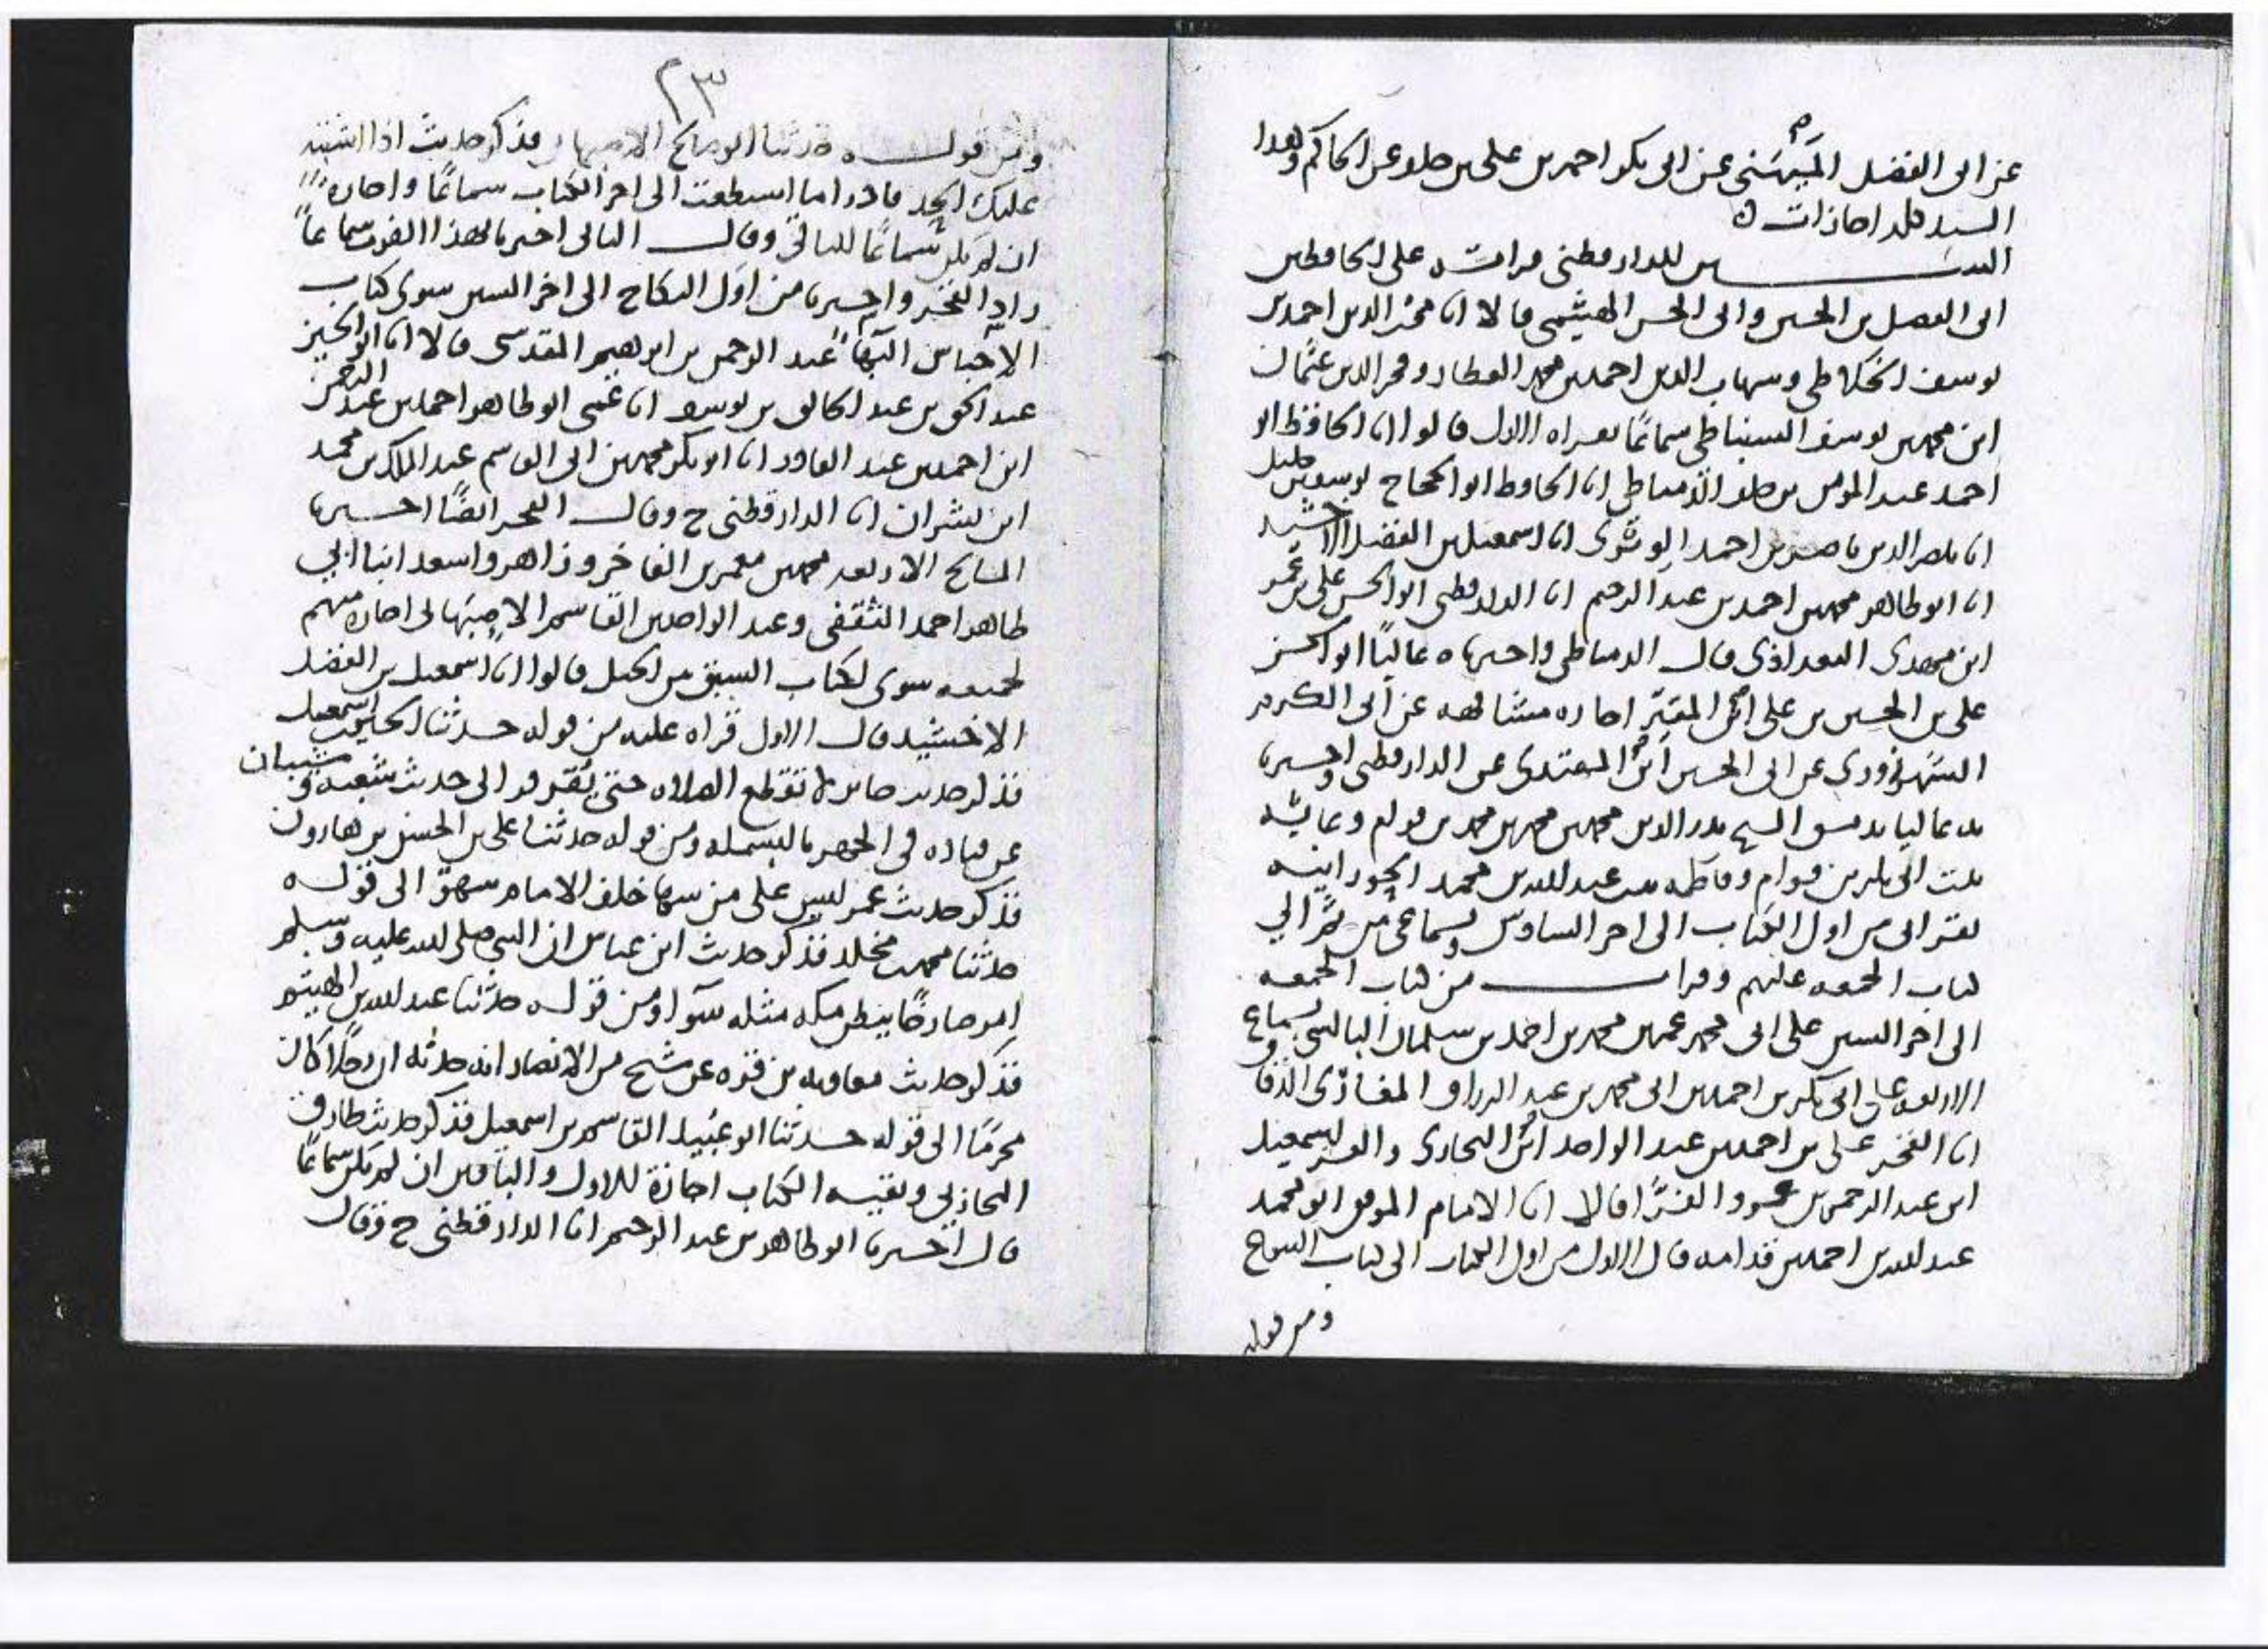 عن ابى الفضل الميهنى عن ابى بكر احمد بن على بن خلف عن الحاكم وهذا
السند كله اجازات
السنن للدارقطنى قراته على الحافظين
ابى الفضل بن الحسين وابى الحسن الهيثمى قالا انا محز الدين احمد بن
يوسف الخلاطى وشهاب الدين احمد بن محمد العطار وفخر الدين عثمان
ابن محمد بن يوسف السنباطى سماعًا بقراه الاول قالوا انا الحافظ ابو
احمد عبد المومن بن خلف الدمياطى انا الحافظ ابو الحجاج يوسف بن خليل
انا ناصر الدين ناصر بن احمد الويثوى انا اسمعيل بن الفضل الاخشيد
انا ابو طاهر محمد بن احمد بن عبد الرحيم انا الدارقطنى ابو الحسن على بن عمر
ابن مهدى البغداذى قال الدمياطى واخبرناه عاليًا ابو الحسن
على بن الحسين بن على ابن المقير اجازه مشافهه عن ابى الكرم
الشهرزورى عن ابى الحسين ابن المهتدى عن الدارقطنى واخبرنا
به عاليا بدمشق الشيخ بدر الدين محمد بن محمد بن محمد بن قوام وعائشه
بنت ابى بكر بن قوام وفاطمه بنت عبد الله بن محمد الحورانيه
بقراتى من اول الكتاب الى اخر السادس وبسماعى من ثم الي
كتاب الجمعه عليهم وقرات من كتاب الجمعه
الى اخر السنن على ابى محمد عمر بن محمد بن احمد بن سلمان البالسى بسماع
الاربعه على ابى بكر بن احمد بن ابى محمد بن عبد الرزاق المغازى الدقاق
انا الفخر على بن احمد بن عبد الواحد ابن البخارى والعز اسمعيل
ابن عبد الرحمن بن عمرو الفرّا قالا انا الامام الموفق ابو محمد
عبد الله بن احمد بن قدامه قال الاول من اول الكتاب الى كتاب النكاح
ومن قوله
٢٣
ومن قوله حدثنا ابو صالح الاصبهانى فذكر حديث اذا اشتد
عليك الحد فادرا ما استطعت الى اخر الكتاب سماعًا واجازه
ان لم يكن سماعًا للباقى وقال الثانى اخبرنا بهذا الفوت سماعًا
زاد الفخر واخبرنا من اول النكاح الى اخر السنن سوى كتاب
الاحباس البها عبد الرحمن بن ابرهيم المقدسى قالا انا ابو الحسين
عبد الحق بن عبد الخالق بن يوسف انا عمى ابو طاهر احمد بن عبد الرحمن
ابن احمد بن عبد القادر انا ابو بكر محمد بن ابى القاسم عبد الملك بن محمد
ابن بشران انا الدارقطنى ح وقال الفخر ايضًا اخبرنا
المشايخ الاربعه محمد بن معمر بن الفاخر وزاهر واسعد ابنا ابي
طاهر احمد الثقفى وعبد الواحد بن القاسم الاصبهانى اجازه منهم
لجميعه سوى لكتاب السبق بين الخيل قالوا انا اسمعيل بن الفضل
الاخشيد قال الاول قراه عليه من قوله حدثنا الحسين بن اسمعيل
فذكر حديث جابر لا تقطع الصلاه حتى يقرقر الى حديث شعبه وشيبان
عن قتاده فى الجهر بالبسمله ومن قوله حدثنا على بن الحسن بن هارون
فذكر حديث عمر ليس على من سها خلف الامام سهوٌ الى قوله
حدثنا محمد بن مخلد فذكر حديث ابن عباس ان النبى صلى الله عليه وسلم
امر صارخًا ببطن مكه مثله سوا ومن قوله حدثنا عبد الله بن الهيثم
فذكر حديث معاويه بن قره عن شيخ من الانصار انه حدثه ان رجلًا كان
محرمًا الى قوله حدثنا ابو عبيد القاسم بن اسمعيل فذكر حديث طارق
المحاربى وبقيه الكتاب اجازة للاول والباقين ان لم يكن سماعًا
قال اخبرنا ابو طاهر بن عبد الرحيم انا الدارقطنى ح وقال